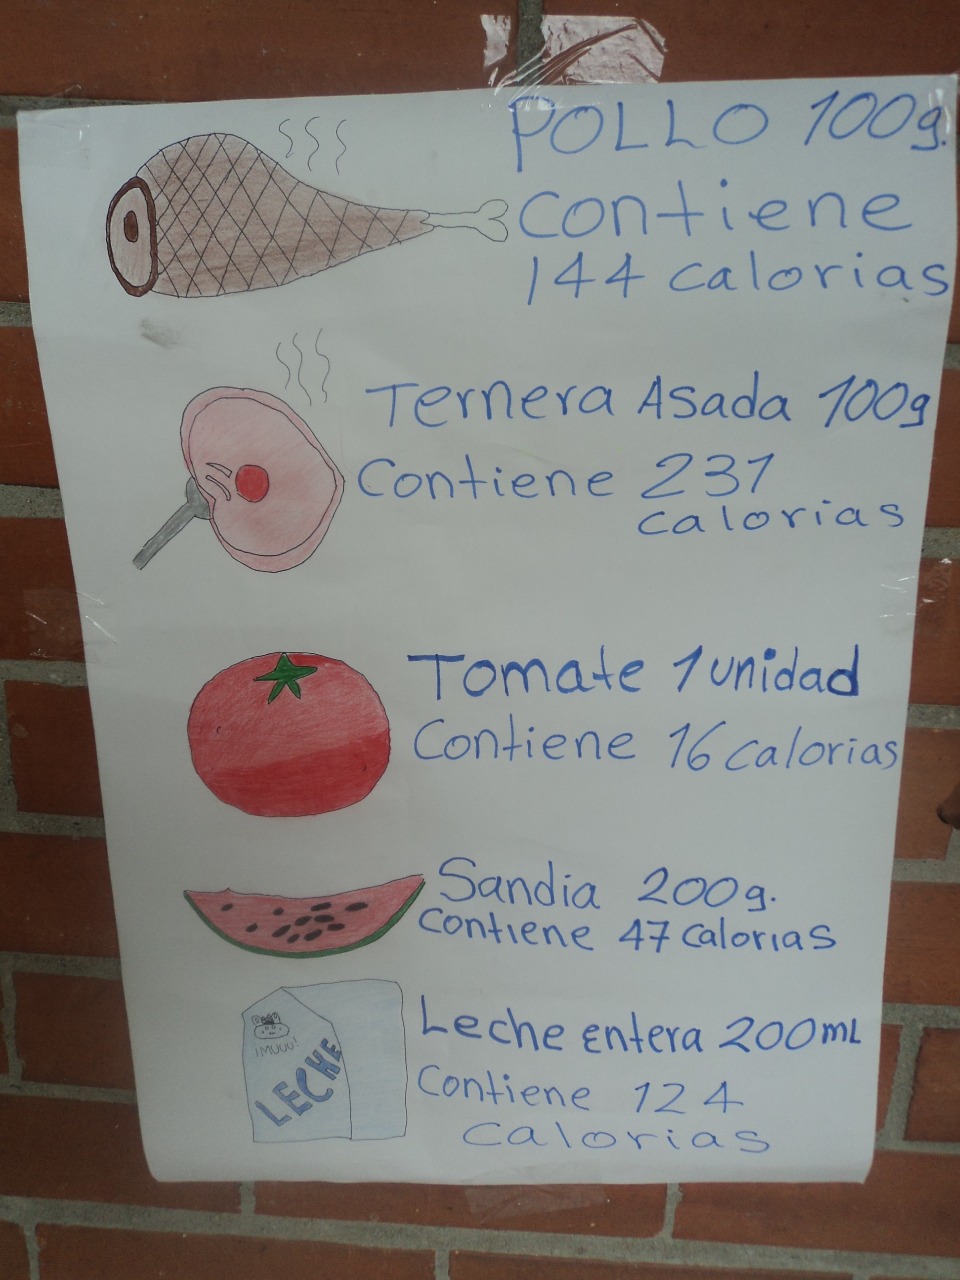 POLLO 100g.
contiene
144 calorias
Ternera Asada 100g
Contiene 231
calorias
Tomate 1 unidad
Contiene 16 calorias
Sandia 200g.
Contiene 47 calorias
¡MUUU!
LECHE
Leche entera 200mL
Contiene 124
calorias